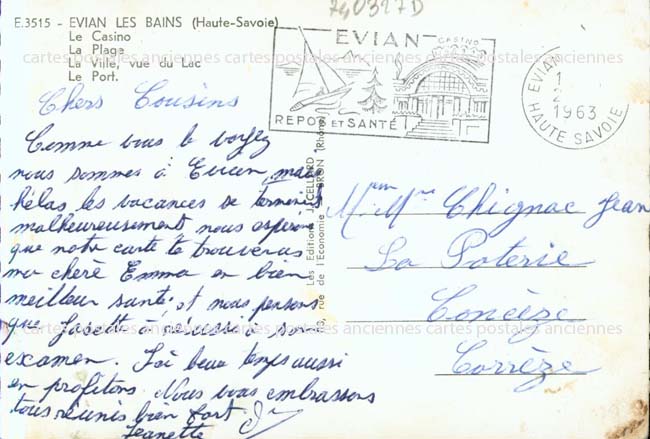 740327D
E.3515 - EVIAN LES BAINS (Haute-Savoie)
Le Casino
La Plage
La Ville, vue du Lac
Le Port.
EVIAN
CASINO
REPOS ET SANTÉ
EVIAN
1
2
1963
HAUTE SAVOIE
Chers Cousins
Comme vous le voyez
nous sommes à Evian, mais
hélas les vacances se terminent
malheureusement nous espérons
que notre carte te trouveras
ma chère Emma en bien
meilleur santé, et nous pensons
que à réussi à son
examen. Ici beau temps aussi
en profitons. Nous vous embrassons
tous réunis bien fort.
Jeanette
Les Editions J. CELLARD
, rue de l'Economie BRON (Rhône)
Mr Mme Chignac Jean
La Poterie
Concèze
Corrèze
cartes postales anciennes cartes postales anciennes cartes postales anciennes